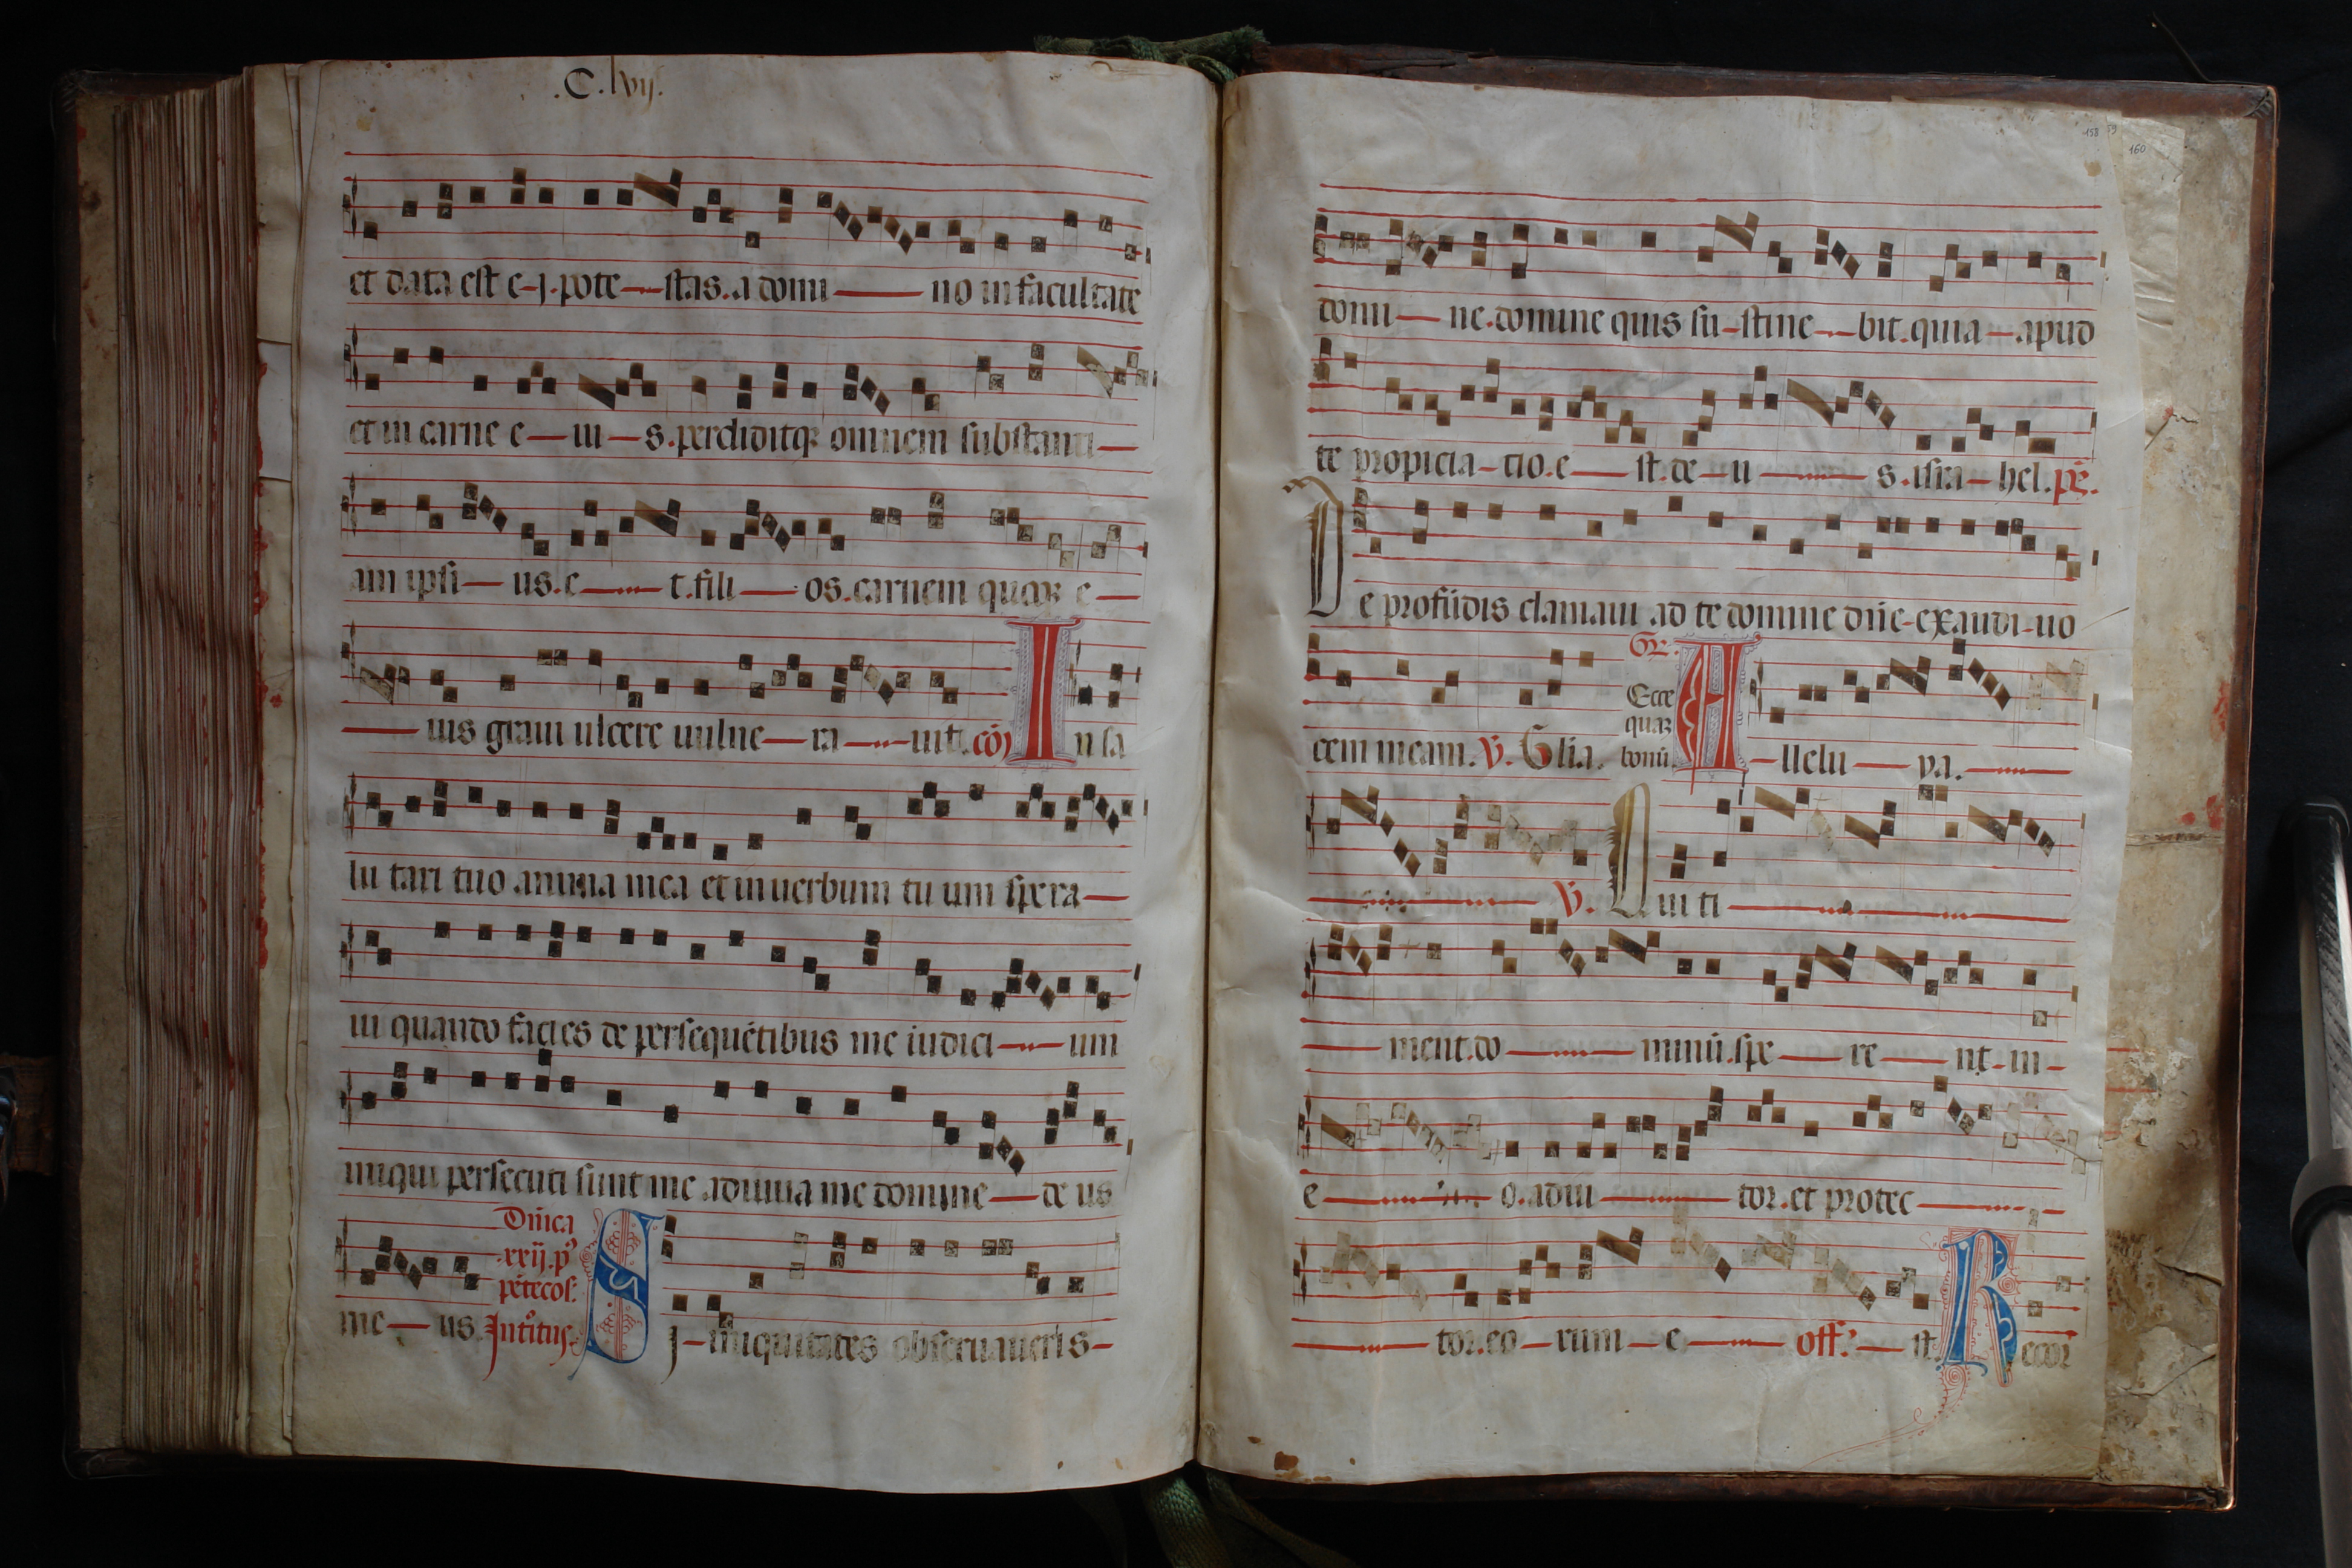 .C.lvij.
et data est e-j.pote-stas.a domi-no in facultate
et in carne e-iu-s.perdiditqꝫ omnem substanti-
am ipsi-us.e-t.fili-os.carnem quoqꝫ e-
ius graui ulcere uulne-ra-uit. cō In sa
lu tari tuo anima mea et in uerbum tu um spera-
ui quando facies de persequētibus me iudici-um
iniqui persecuti sunt me adiuua me domine-de us
me-us.
Dn̄ica
.xxij.p᷒
pētecos:
Introitus
Sj-iniquitates obseruaueris-
158 59
160
domi-ne.domine quis su-stine-bit.quia-apud
te propicia-tio.e-st.de-u-s.isra-hel.ps̄.
De profūdis clamaui ad te domine dn̄e-exaudi-uo
cem meam. V̄. Glia.
Gr̄.
Ecce
quaꝫ
bonū.
A-llelu-ya.-
V̄. Qui ti-
-ment.do-minū.spe-re-nt-in-
e-o.adiu-tor.et protec-
-tor.eo-rum-e- off: -st. Recor